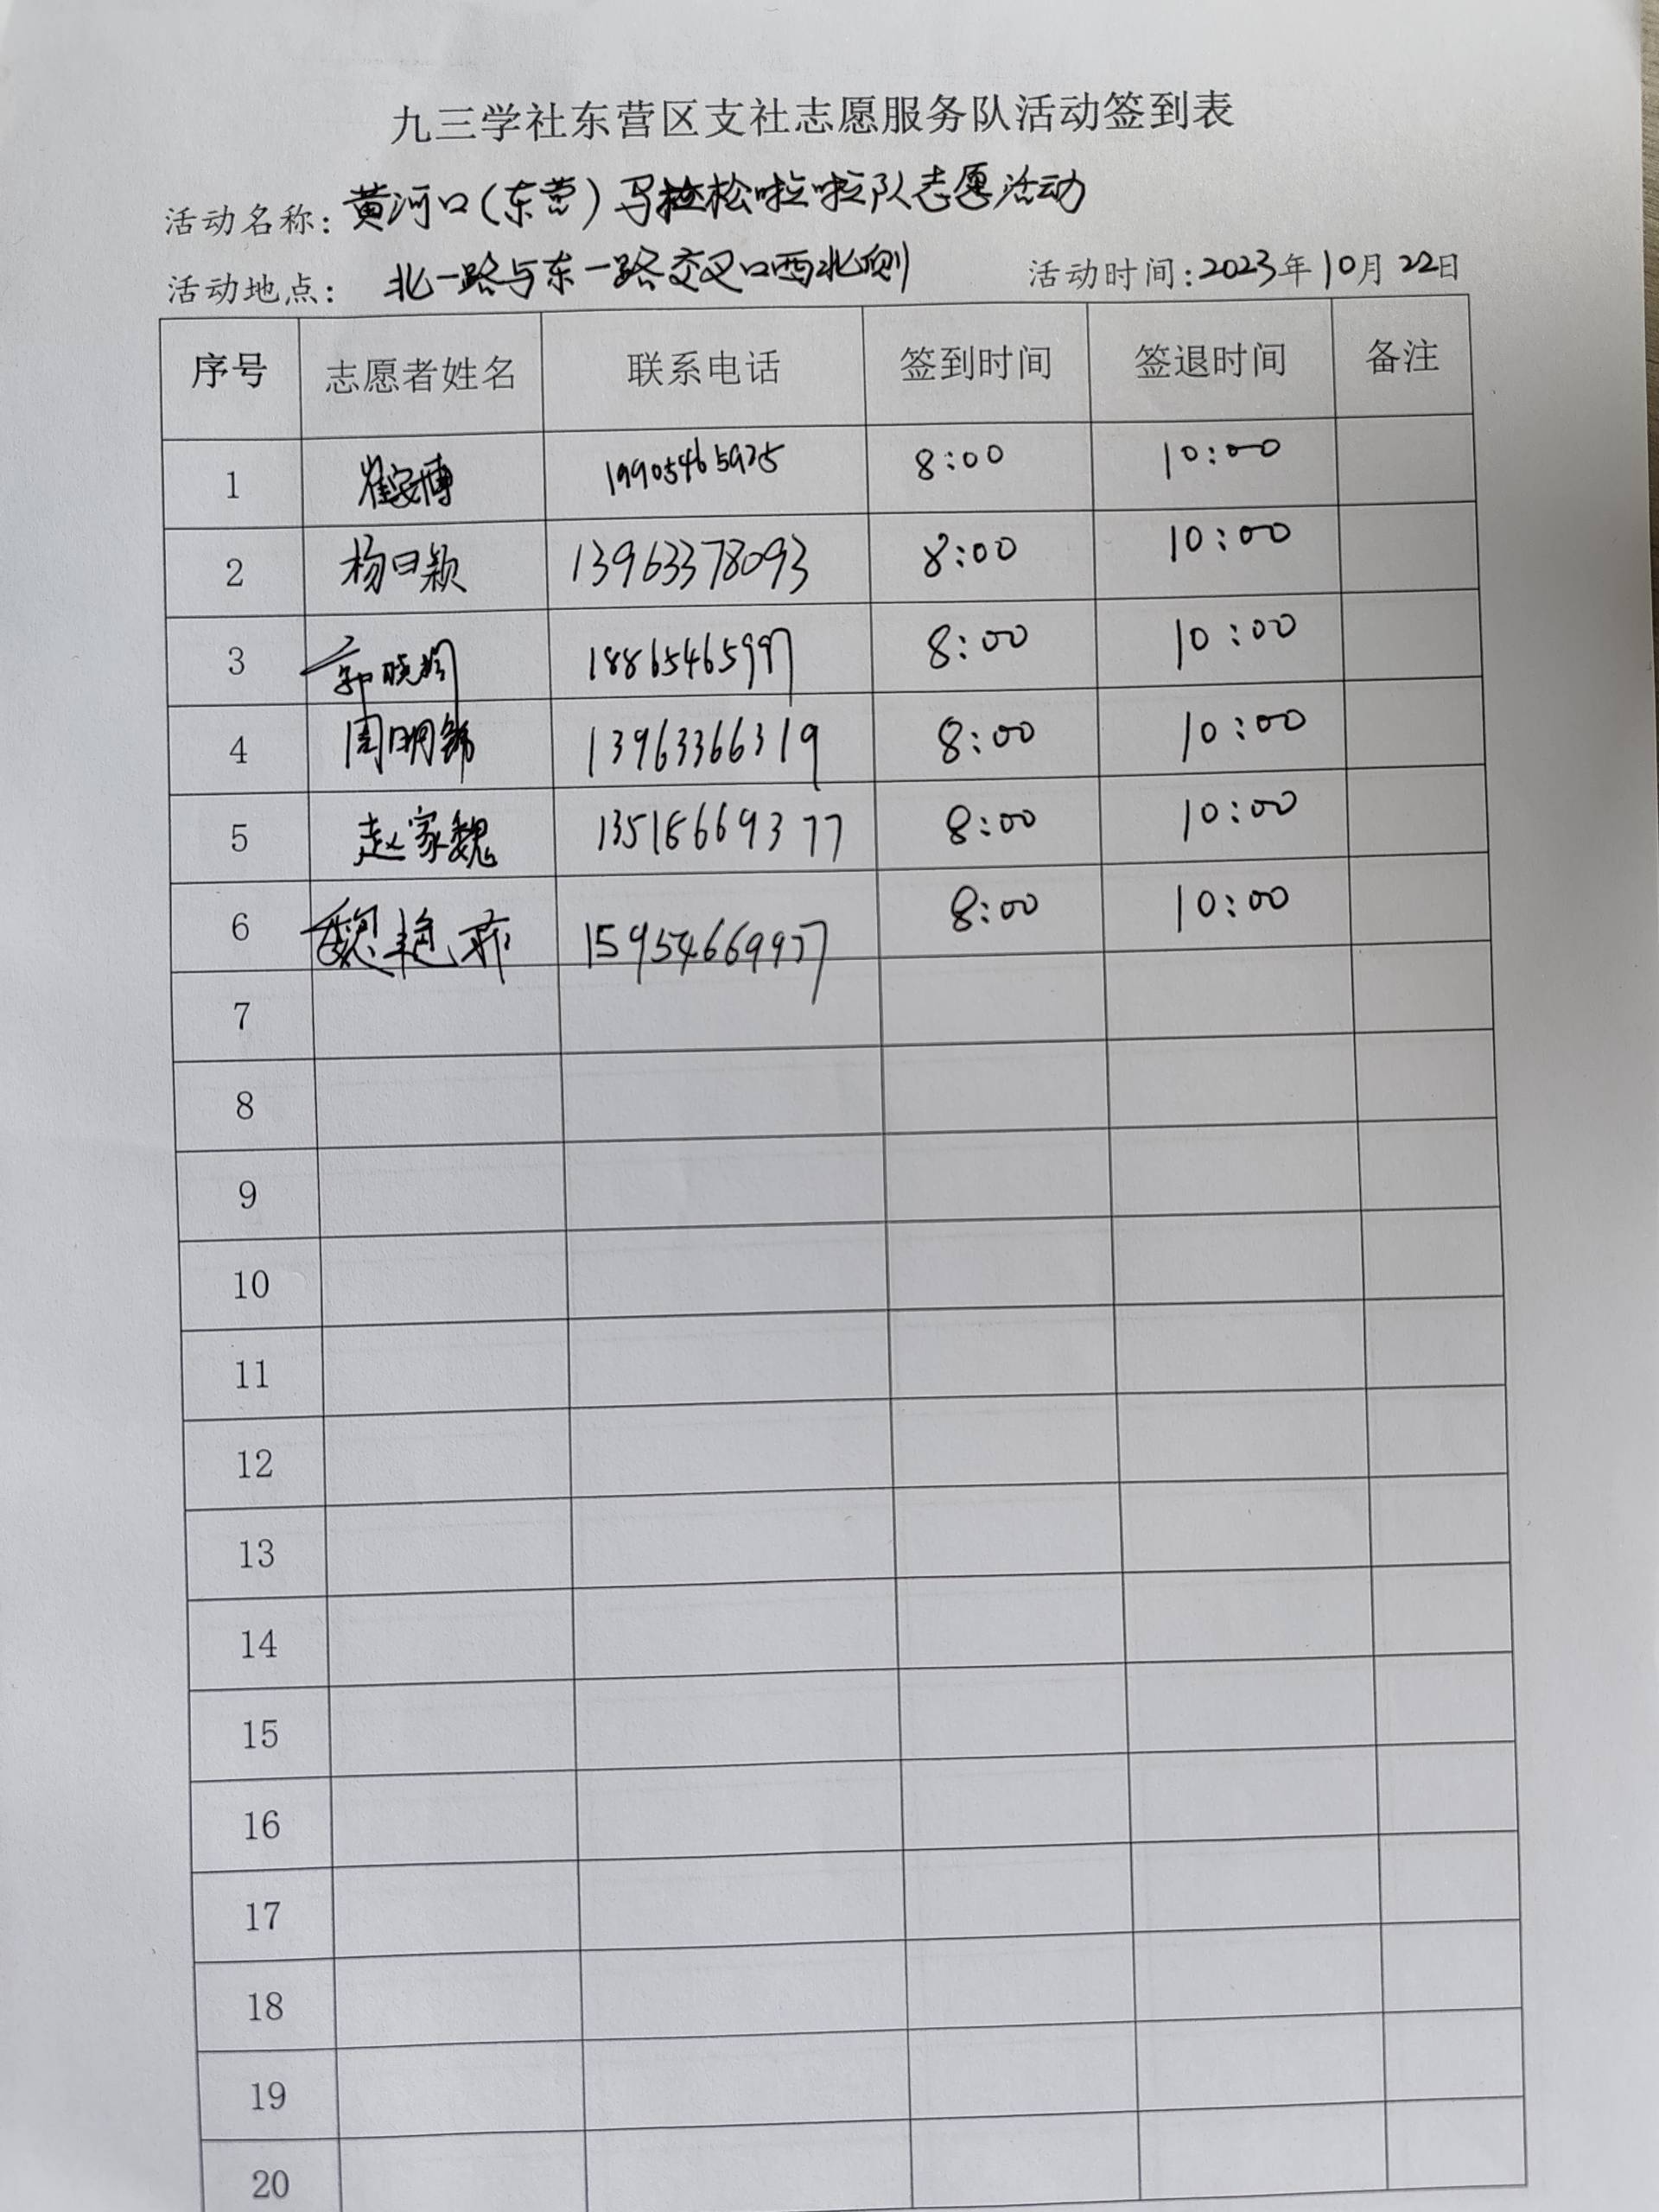 九三学社东营区支社志愿服务队活动签到表
活动名称: 黄河口(东营)马拉松啦啦队志愿活动
活动地点: 北一路与东一路交叉口西北侧 活动时间:2023年10月22日
序号 志愿者姓名 联系电话 签到时间 签退时间 备注
1 崔安博 19905465925 8:00 10:00
2 杨曰颖 13963378093 8:00 10:00
3 郭晓 18865465997 8:00 10:00
4 周明 13963366319 8:00 10:00
5 赵家魏 13516669377 8:00 10:00
6 魏艳 15954669977 8:00 10:00
7
8
9
10
11
12
13
14
15
16
17
18
19
20